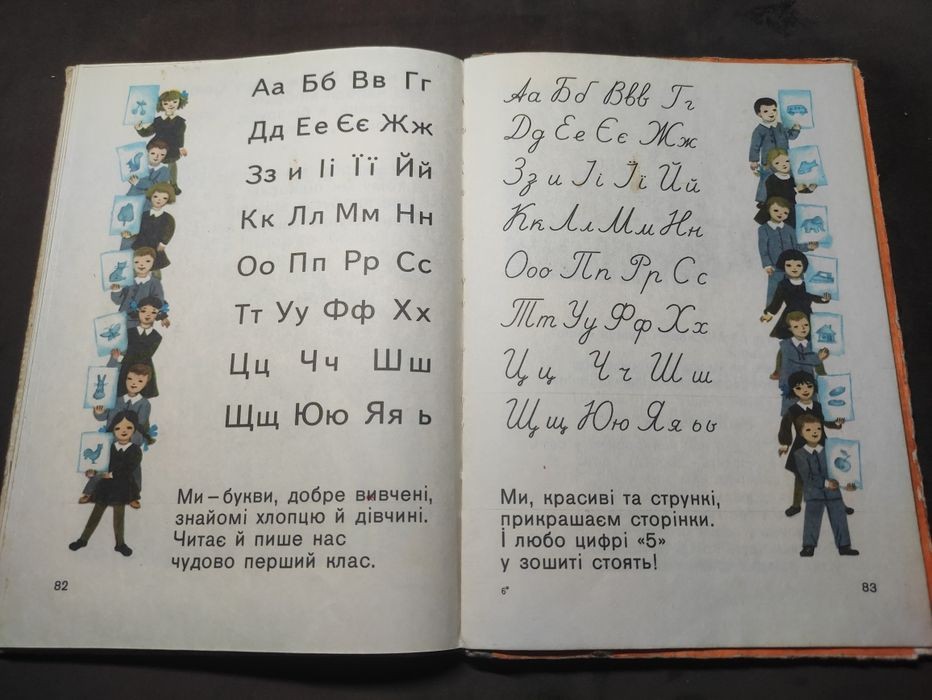 Аа Бб Вв Гг
Дд Ее Єє Жж
Зз и Іі Її Йй
Кк Лл Мм Нн
Оо Пп Рр Сс
Тт Уу Фф Хх
Цц Чч Шш
Щщ Юю Яя ь
Ми – букви, добре вивчені,
знайомі хлопцю й дівчині.
Читає й пише нас
чудово перший клас.
82
Аа Бб Ввв Гг
Дд Ее Єє Жж
Зз и Іі Її Йй
Кк Лл Мм Нн
Ооо Пп Рр Сс
Тт Уу Фф Хх
Цц Чч Шш
Щщ Юю Яя ьь
Ми, красиві та стрункі,
прикрашаєм сторінки.
І любо цифрі «5»
у зошиті стоять!
6*
83